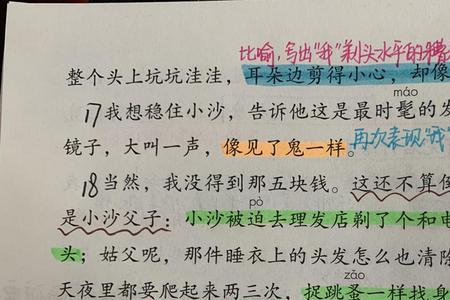 比喻,写出"我"剃头水平的糟
整个头上坑坑洼洼,耳朵边剪得小心,却像
máo
17我想稳住小沙,告诉他这是最时髦的发
镜子,大叫一声,像见了鬼一样。再次表现"我"
18当然,我没得到那五块钱。这还不算倒
pò
是小沙父子:小沙被迫去理发店剃了个和电
头;姑父呢,那件睡衣上的头发怎么也清除
zǎo
天夜里都要爬起来两三次,捉跳蚤一样找身